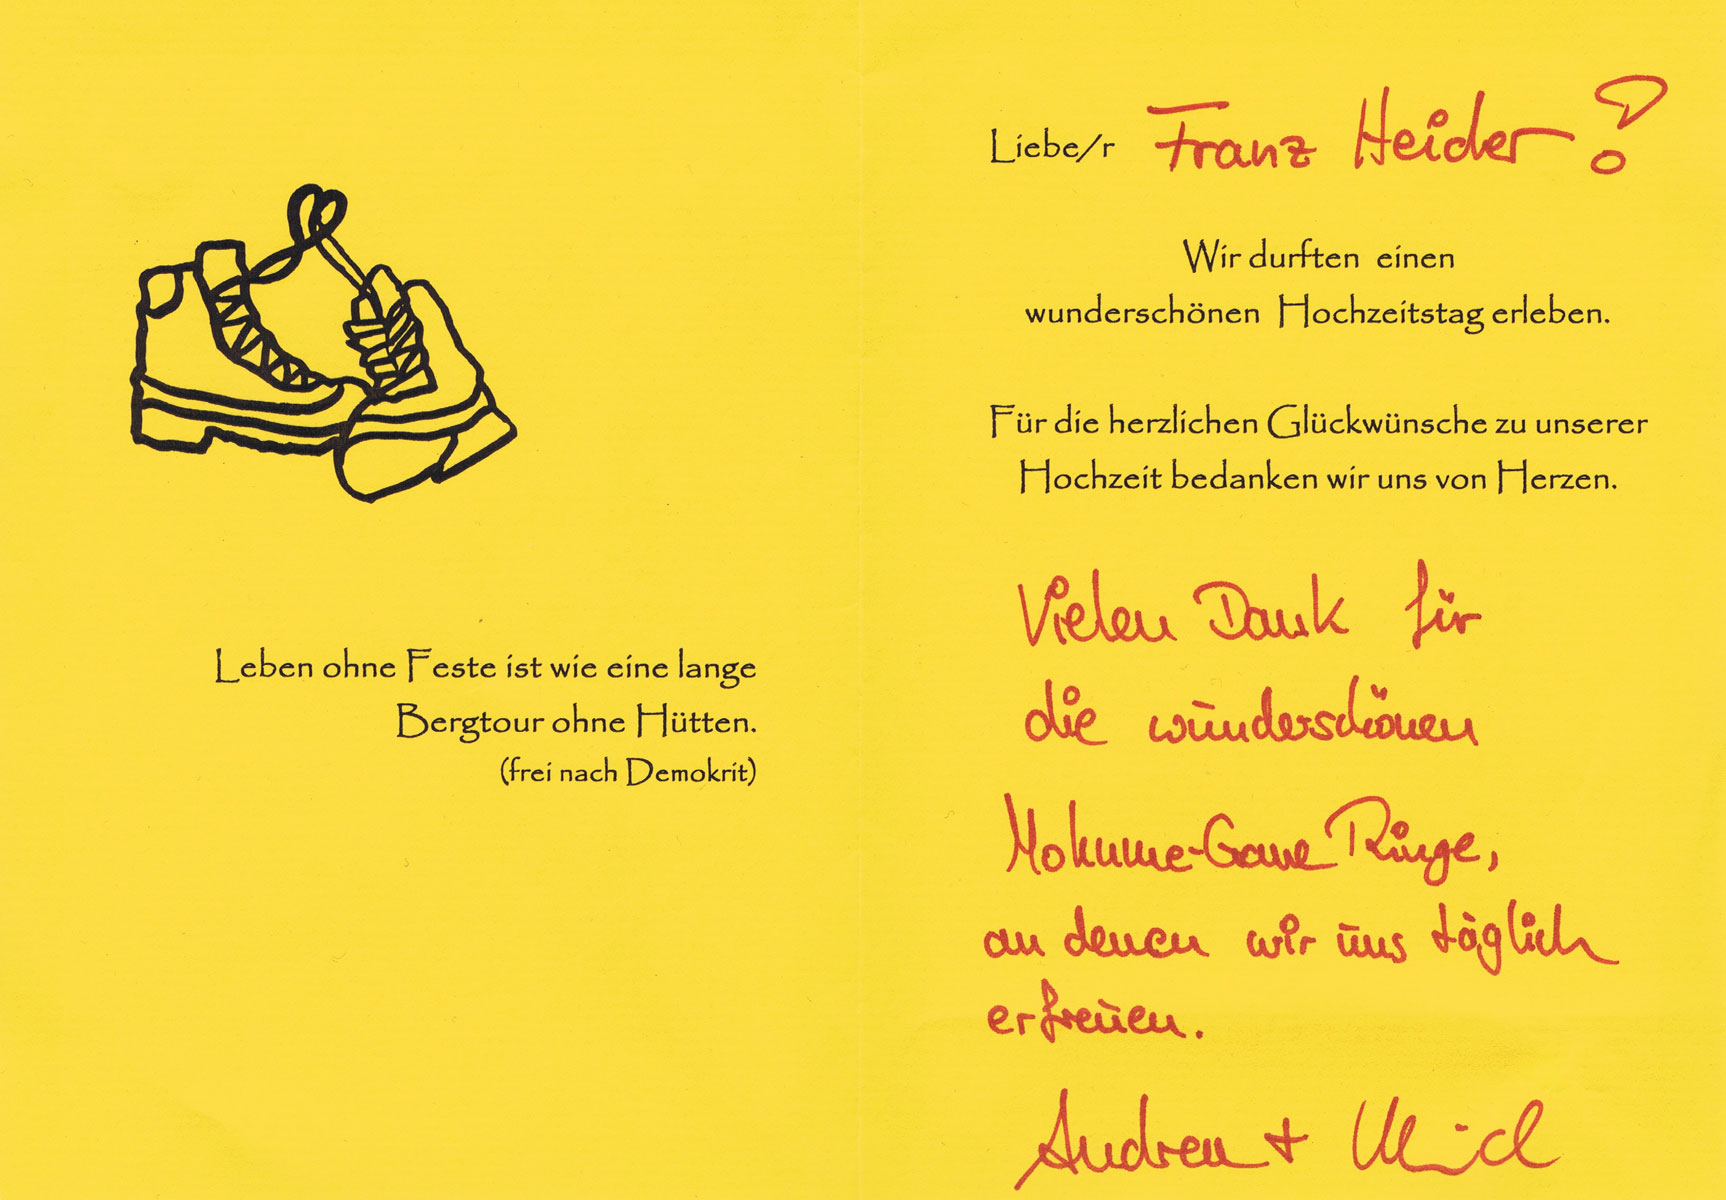 Leben ohne Feste ist wie eine lange
Bergtour ohne Hütten.
(frei nach Demokrit)
Liebe/r Franz Heider!
Wir durften einen
wunderschönen Hochzeitstag erleben.
Für die herzlichen Glückwünsche zu unserer
Hochzeit bedanken wir uns von Herzen.
Vielen Dank für
die wunderschönen
Mokume-Gane Ringe,
an denen wir uns täglich
erfreuen.
Andrea + Ulrich